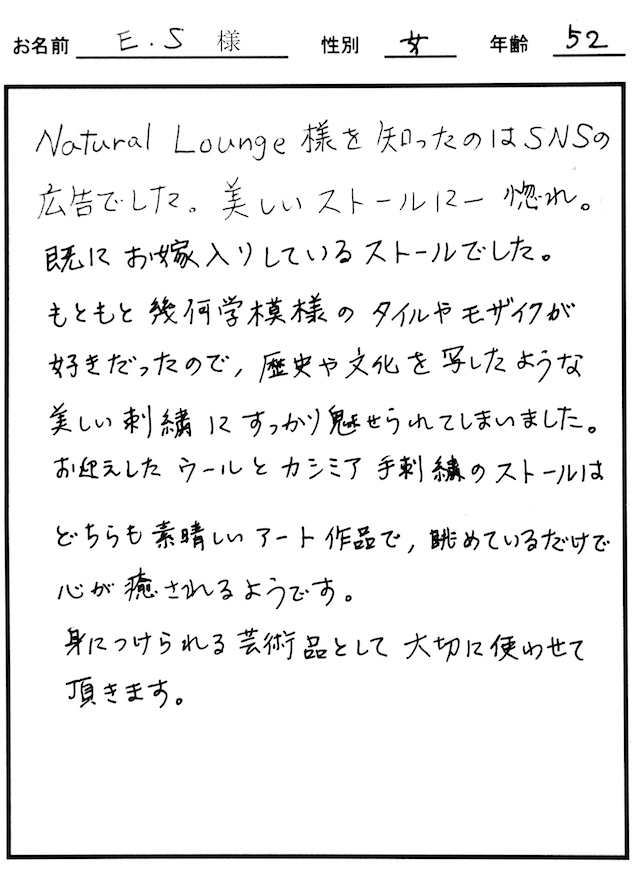 お名前 E.S 様 性別 女 年齢 52
Natural Lounge様を知ったのはSNSの
広告でした。美しいストールに一惚れ。
既にお嫁入りしているストールでした。
もともと幾何学模様のタイルやモザイクが
好きだったので,歴史や文化を写したような
美しい刺繍にすっかり魅せられてしまいました。
お迎えしたウールとカシミア手刺繍のストールは
どちらも素晴しいアート作品で,眺めているだけで
心が癒されるようです。
身につけられる芸術品として大切に使わせて
頂きます。